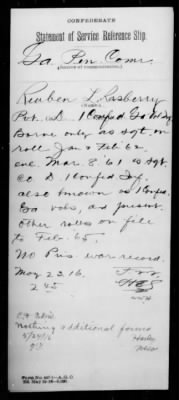 CONFEDERATE
Statement of Service Reference Slip.
Ga. Pen. Comr.
(Source of communication.)
Reuben L. Rasberry
(Name.)
Pvt. Co D. 1 Confed Ga
Borne only as Sgt. on
roll Jan & Feb '62
enl Mar. 8 '61 as Sgt.
Co D. 1 Confed Inf.
also known as 1 Confed.
Ga vols, as present.
Other rolls on file
to Feb. '65.
No Pris. war record.
May 23. 16.
245
Nothing additional found
5/24/16
Form No. 667-1—A. G. O.